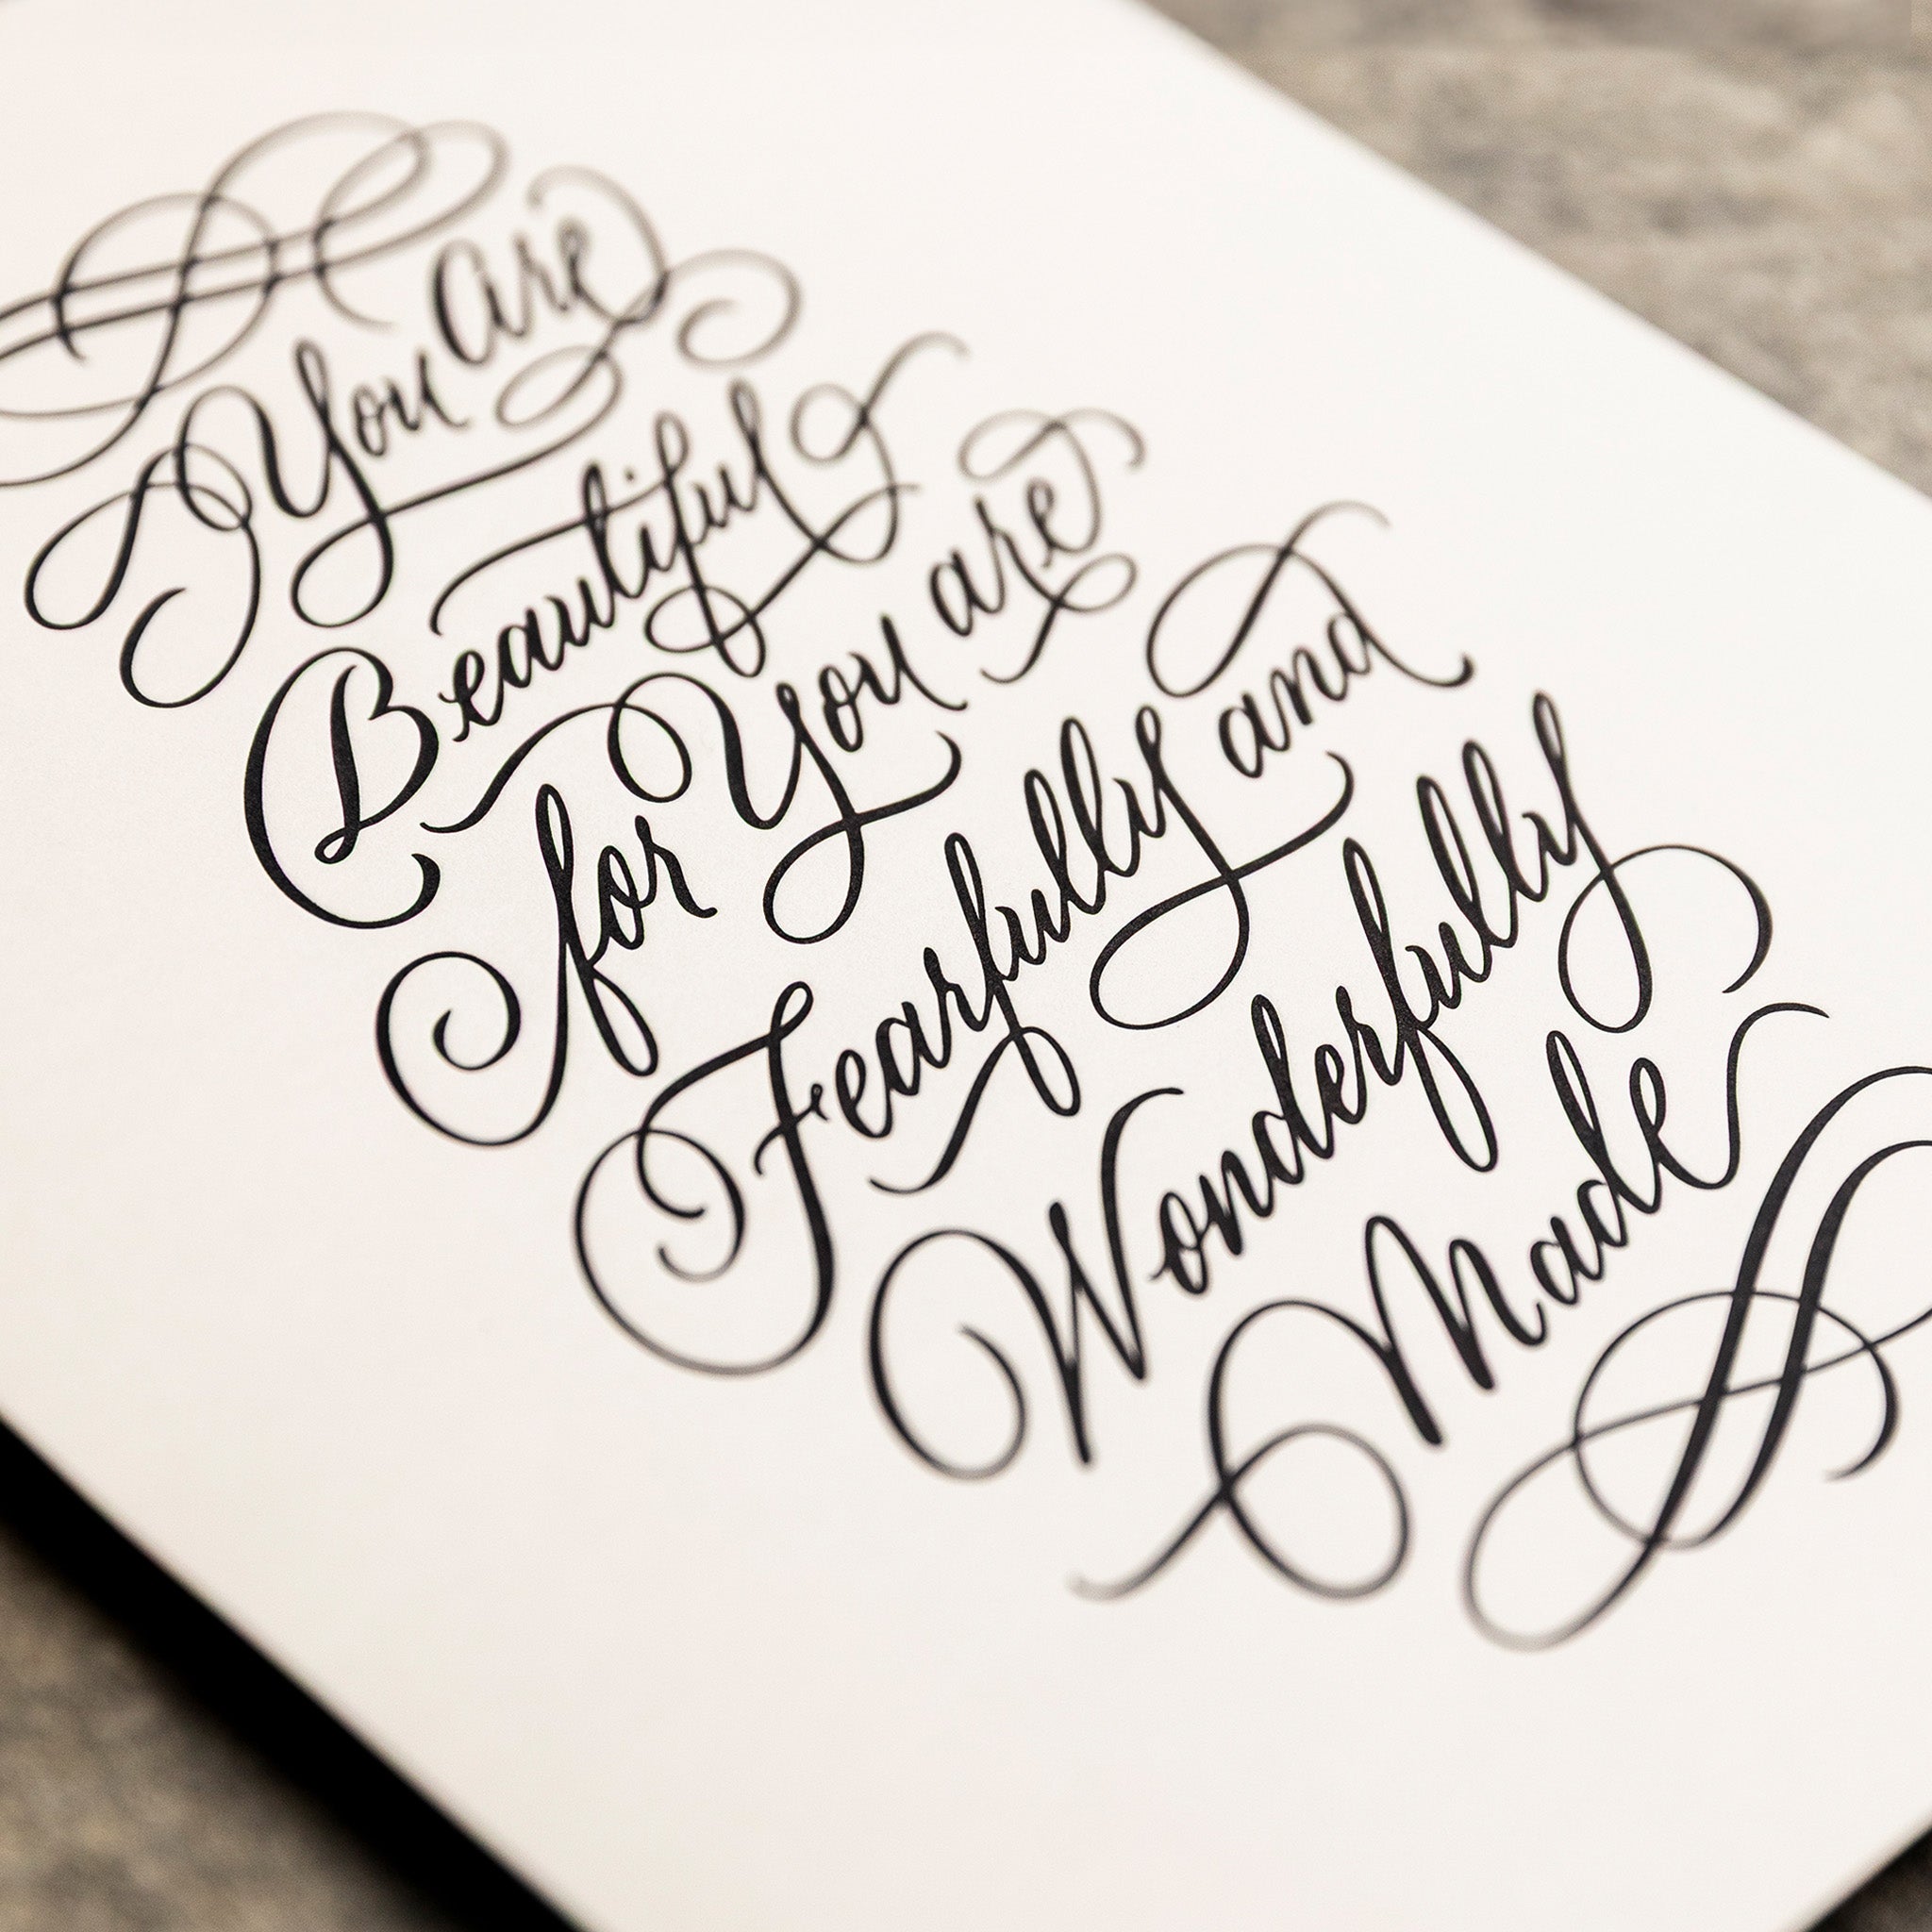 You are
Beautiful
for You are
Fearfully and
Wonderfully
Made